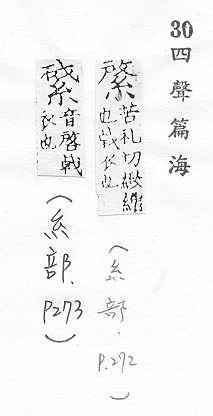 30 四聲篇海
綮
苦礼切緻繒
也戟衣也
(糸部. P.272)
音啓戟
衣也
(糸部. P273)